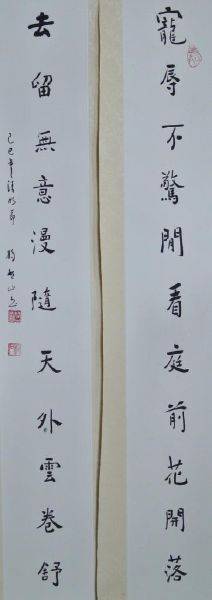 寵辱不驚閒看庭前花開落
去留無意漫隨天外雲卷舒
己巳年清明節